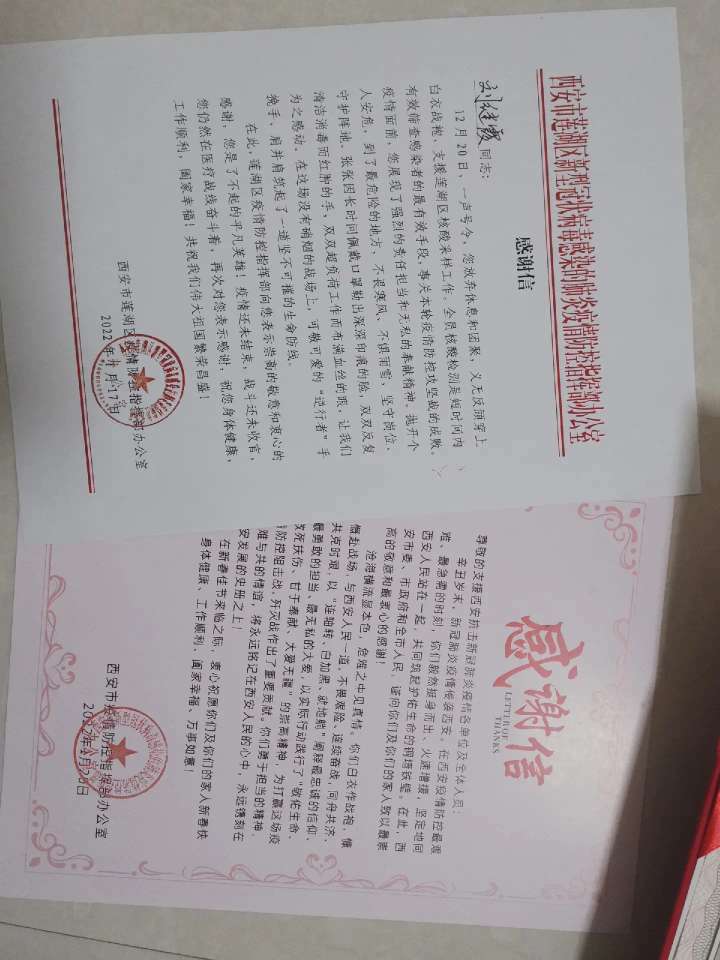 西安市莲湖区新型冠状病毒感染的肺炎疫情防控指挥部办公室
感谢信
同志：
12月20日，一声号令，您放弃休息和团聚，义无反顾穿上
白衣战袍，支援莲湖区核酸采样工作。全员核酸检测是短时间内
有效筛查感染者的最有效手段，事关本轮疫情防控攻坚战的成败。
疫情面前，您展现了强烈的责任担当和无私的奉献精神，抛开个
人安危，到了最危险的地方，不畏寒风、不惧雨雪，坚守岗位、
守护阵地。张张因长时间佩戴口罩勒出深深印痕的脸，双双反复
清洁消毒而红肿的手，双双超负荷工作而布满血丝的眼，让我们
为之感动。在这场没有硝烟的战场上，可敬可爱的“逆行者”手
挽手、肩并肩筑起了一道坚不可摧的生命防线。
在此，莲湖区疫情防控指挥部向您表示崇高的敬意和衷心的
感谢，您是了不起的平凡英雄！疫情还未结束，战斗还未收官，
您仍然在医疗战线奋斗着，再次对您表示感谢，祝您身体健康，
工作顺利，阖家幸福！共祝我们伟大祖国繁荣昌盛！
西安市莲湖区疫情防控指挥部办公室
2022年1月17日
感谢信
LETTER OF
THANKS
尊敬的支援西安抗击新冠肺炎疫情各单位及全体人员：
辛丑岁末，新冠肺炎疫情侵袭西安。在西安疫情防控最艰
难、最急需的时刻，你们毅然挺身而出、火速增援，坚定地同
西安人民站在一起，共同筑起护佑生命的钢铁铁壁。在此，西
安市委、市政府和全市人民，谨向你们及你们的家人致以最崇
高的敬意和最衷心的感谢！
沧海横流显本色，危难之中见真情。你们白衣作战袍，慷
慨赴战场，与西安人民一道，不畏艰险、连续奋战，同舟共济、
共克时艰，以“连轴转、白加黑、就地躺”阐释最忠诚的信仰、
最勇敢的担当、最无私的大爱，以实际行动践行了“敬佑生命、
救死扶伤、甘于奉献、大爱无疆”的崇高精神，为打赢这场疫
情防控阻击战、歼灭战作出了重要贡献。你们勇于担当的精神、
难与共的情谊，将永远铭记在西安人民的心中，永远镌刻在
安发展的史册之上！
在新春佳节来临之际，衷心祝愿你们及你们的家人新春快
身体健康、工作顺利、阖家幸福、万事如意！
西安市疫情防控指挥部办公室
2022年1月20日